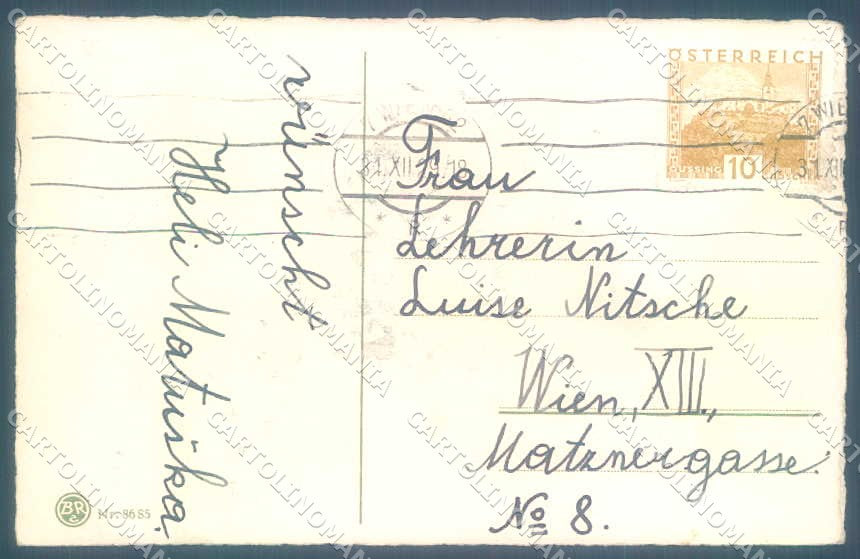 wünscht
Heli Matuška.
ÖSTERREICH
10
GÜSSING
31.XII.29.18
Frau
Lehrerin
Luise Nitsche
Wien, XIII.,
Matznergasse
No 8.
BR
Nr. 8685
CARTOLINOMANIA